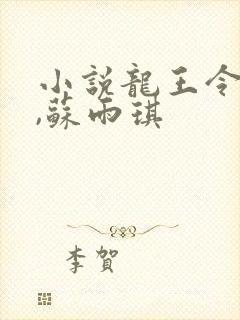 小説龍王令
,蘇雨琪
李賀